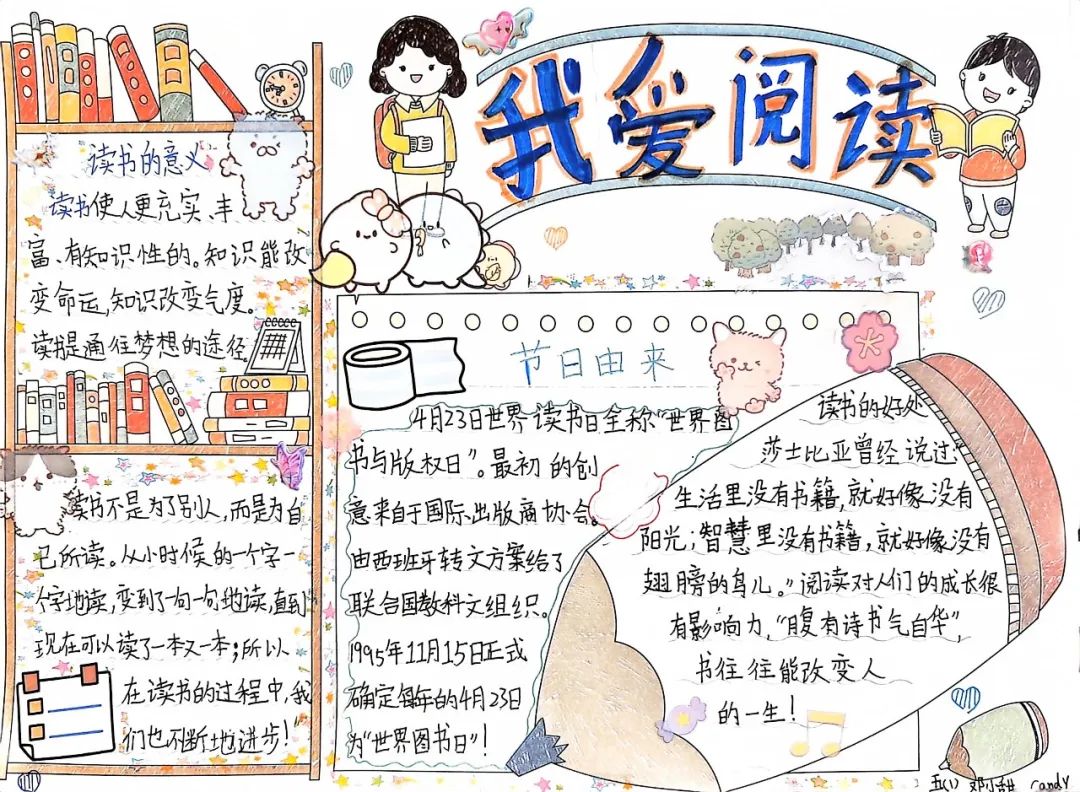 我爱阅读
读书的意义
读书使人更充实、丰
富、有知识性的。知识能改
变命运,知识改变气度。
读书是通往梦想的途径。
读书不是为了别人,而是为自
己所读。从小时候的一个字一
个字地读,变到了一句一句地读,直到
现在可以读了一本又一本;所以
在读书的过程中,我
们也不断地进步!
节日由来
4月23日世界读书日全称“世界图
书与版权日”。最初的创
意来自于国际出版商协会。
由西班牙转文方案给了
联合国教科文组织。
1995年11月15日正式
确定每年的4月23日
为“世界图书日”!
读书的好处
莎士比亚曾经说过:
生活里没有书籍,就好像没有
阳光;智慧里没有书籍,就好像没有
翅膀的鸟儿。”阅读对人们的成长很
有影响力,“腹有诗书气自华”,
书往往能改变人
的一生!
五(1) 邓小甜 Candy